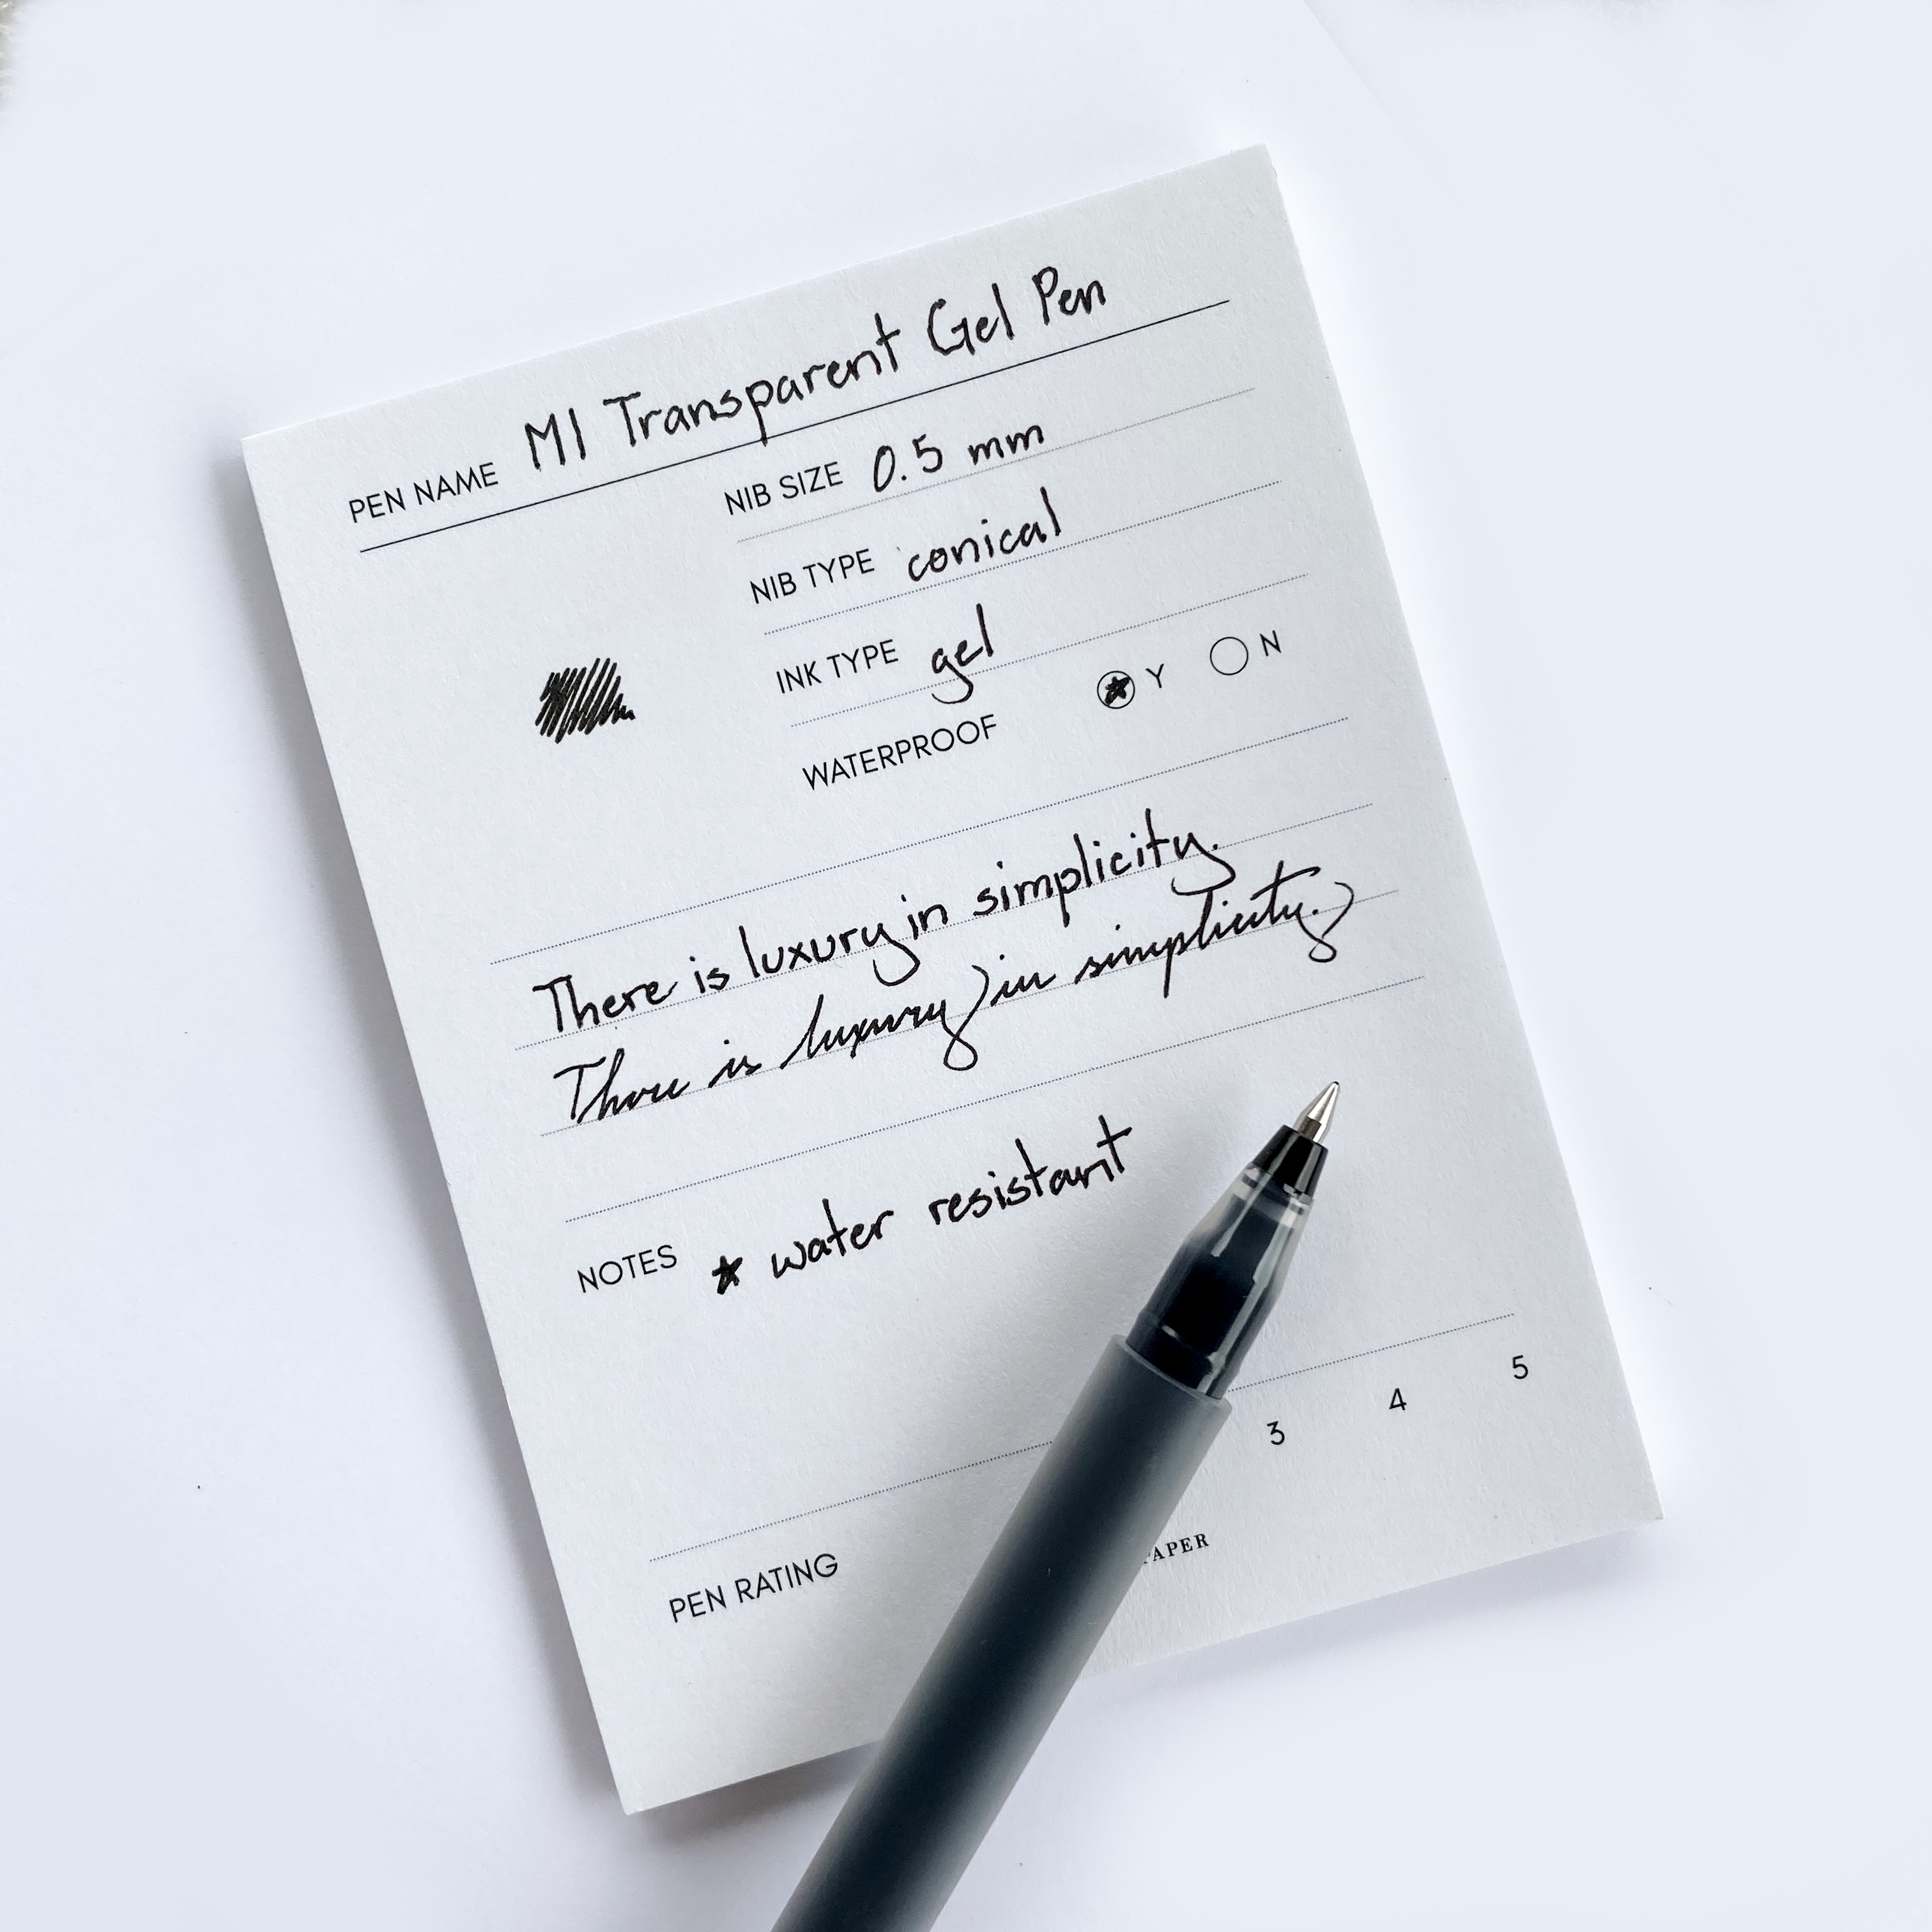 PEN NAME MI Transparent Gel Pen
NIB SIZE 0.5 mm
NIB TYPE conical
INK TYPE gel
WATERPROOF ★ Y N
There is luxury in simplicity.
There is luxury in simplicity.
NOTES ★ water resistant
PEN RATING 3 4 5